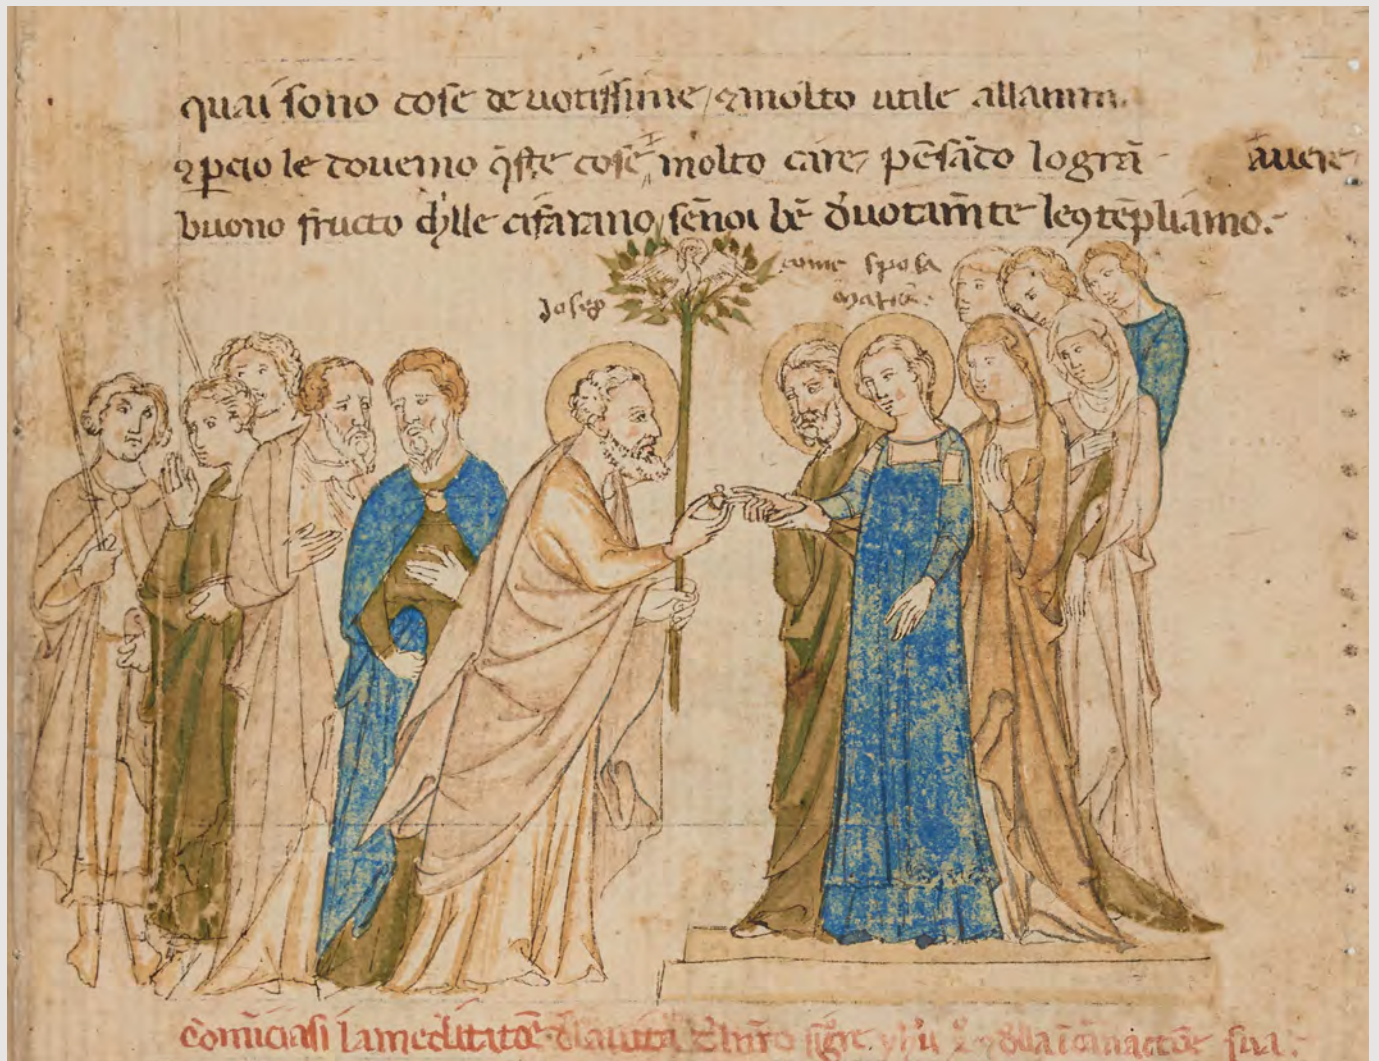 quai sono cose deuotissime / ⁊ molto utile allanima.
⁊ ꝑcio le douemo q̄ste cose molto care, pēsādo logram̄ auere
buono fructo dy̓lle cifarāno / sēnoi bē d̓uotam̄te le ꝯtēpliamo.
Josep
come sposa
Maria:
Comīciasi la meditatōe d̓lla uita sua.